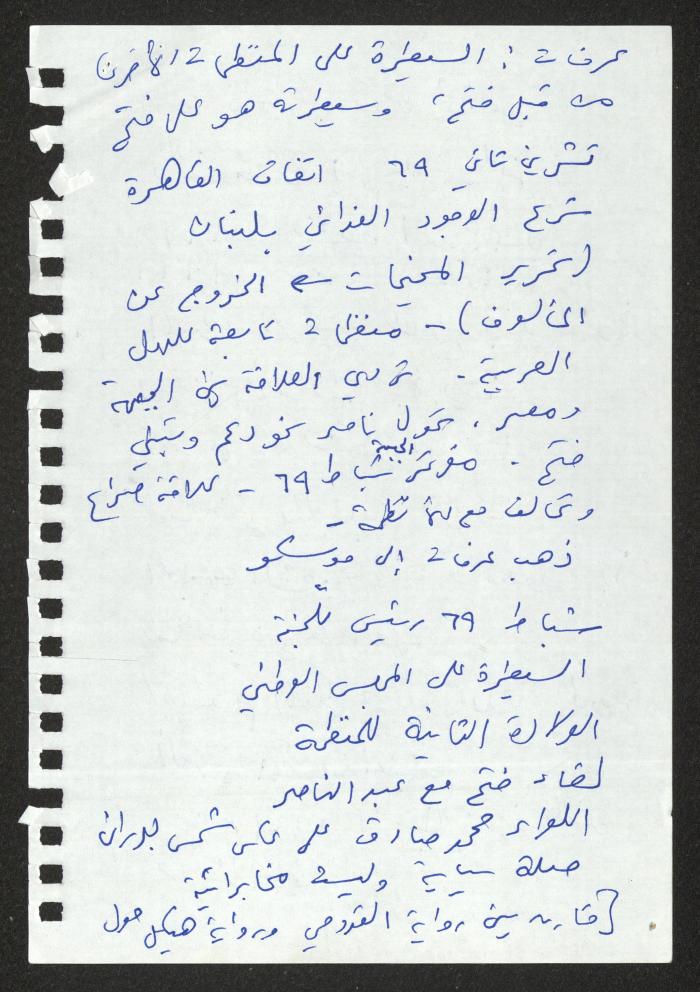 عرفات: السيطرة على المنظمات الأخرى
من قبل فتح، وسيطرته هو على فتح
تشرين ثاني ٦٩ اتفاق القاهرة
شرع الوجود الفدائي بلبنان
(تحرير المخيمات الخروج عن
المألوف) - منظمات تابعة للدول
العربية. تردي العلاقة بين الجبهة
ومصر. تحول ناصر نحو دعم وتبني
فتح. مؤتمر الجبهة شباط ٦٩ - علاقة صراع
وتحالف مع الأنظمة -
ذهب عرفات إلى موسكو
شباط ٦٩ رئيس للجنة
السيطرة على المجلس الوطني
الولادة الثانية للمنظمة
لقاء فتح مع عبد الناصر
اللواء محمد صادق شمس بدران
صلة سياسية وليست مخابراتية
[قارن بين رواية القدومي ورواية هيكل حول